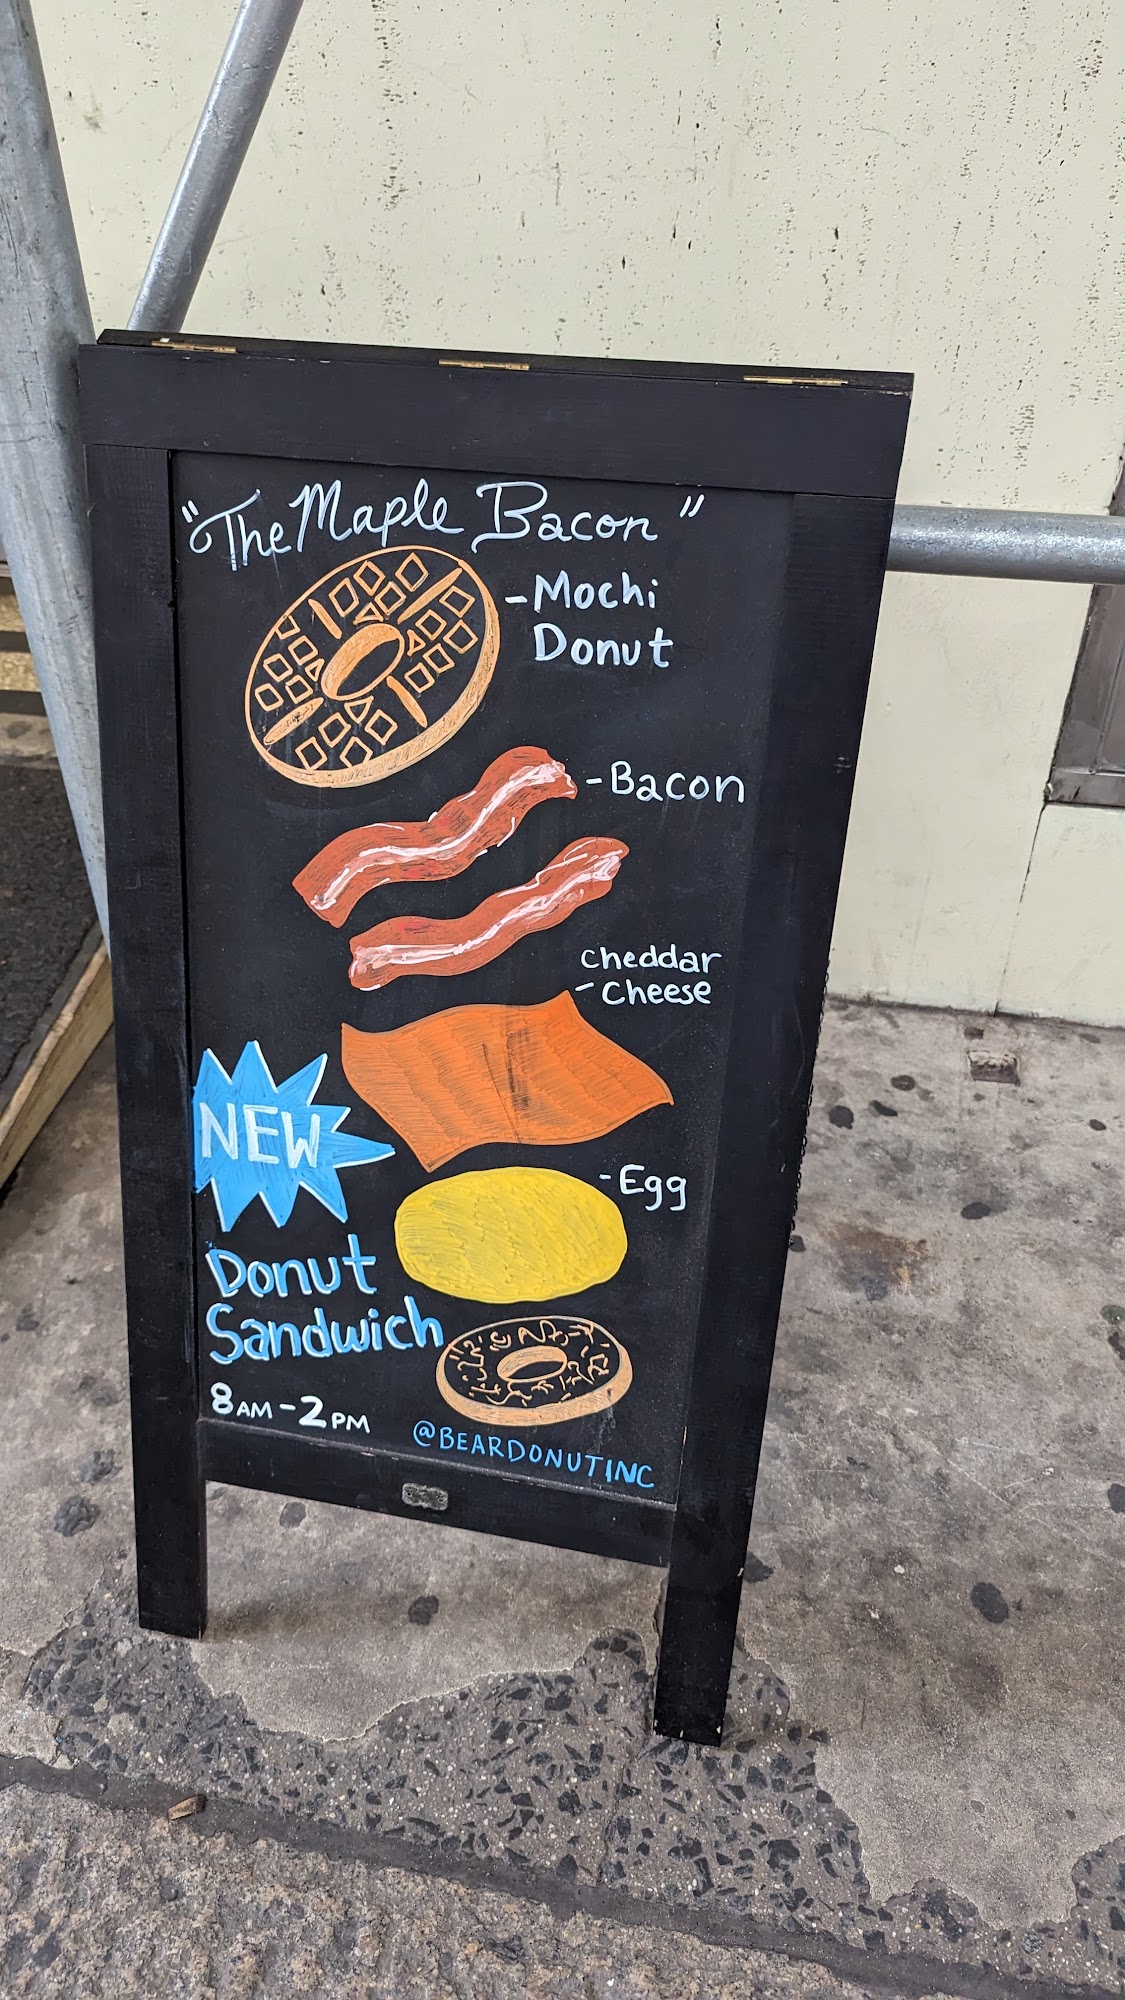 "The Maple Bacon"
-Mochi
Donut
-Bacon
Cheddar
-Cheese
NEW
-Egg
Donut
Sandwich
8AM-2PM
@BEARDONUTINC